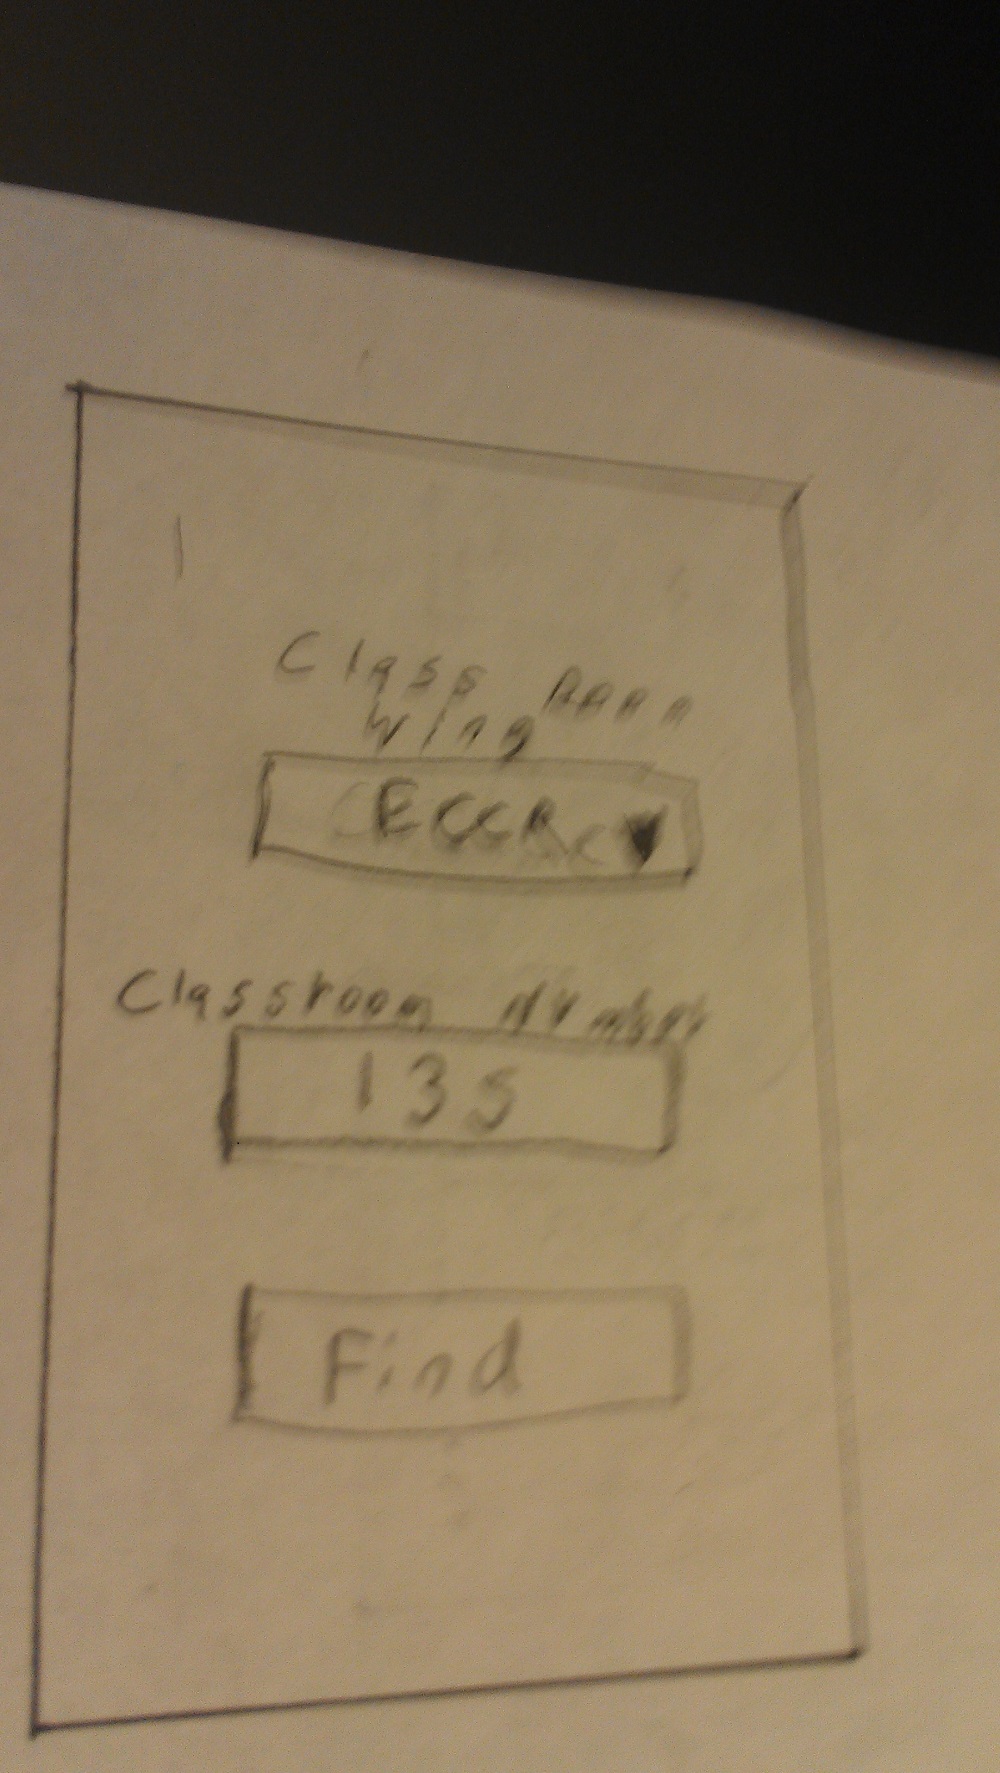 Class Room
Wing
ECCR
Classroom Number
135
Find